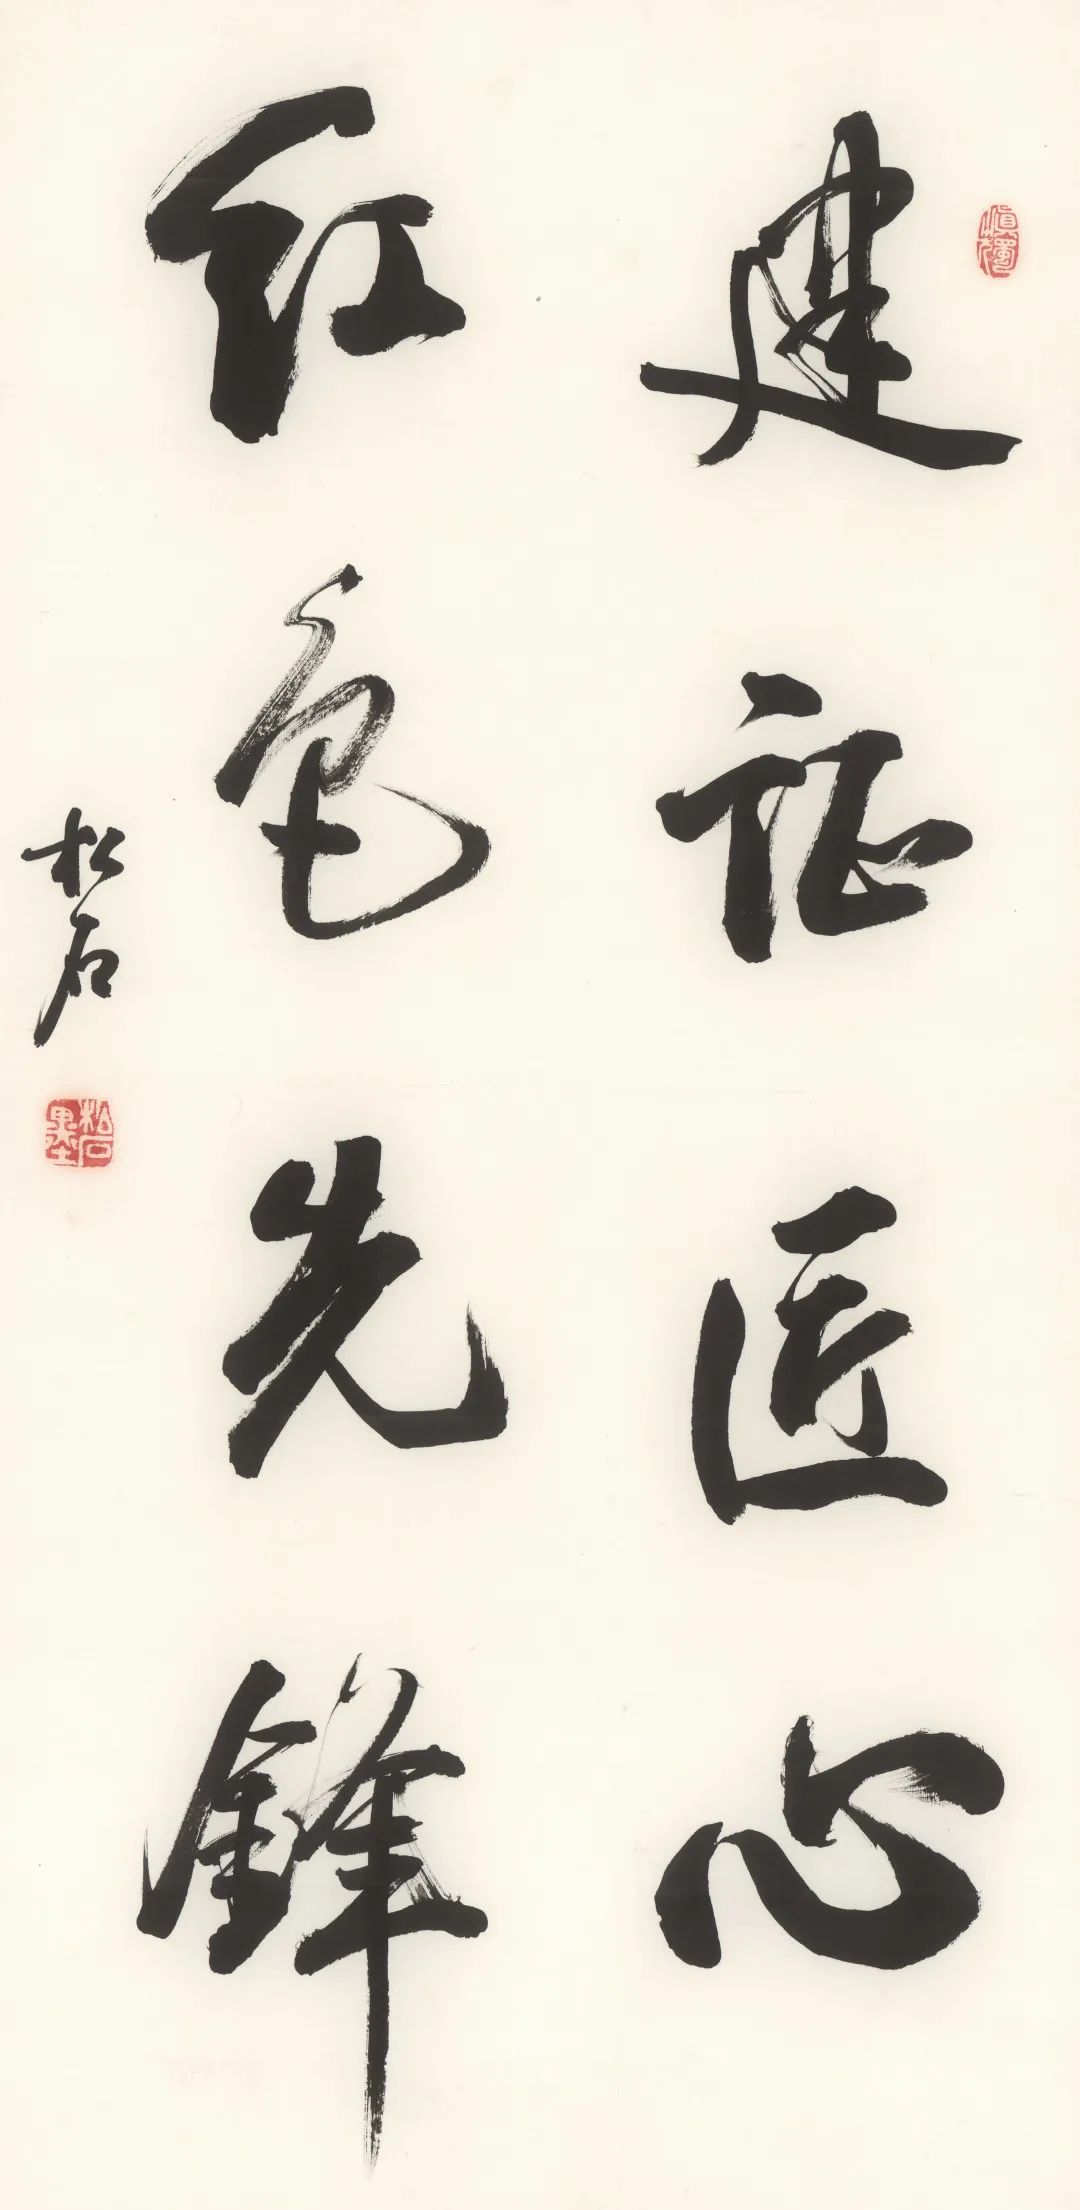 建证匠心
红色先锋
松石
慎独
松石墨